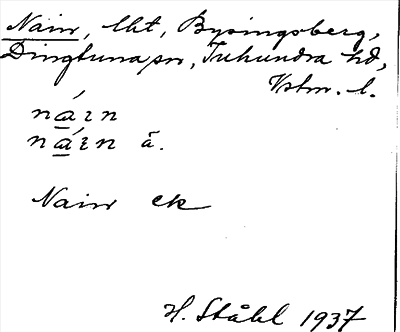 Nain, lht, Bysingsberg,
Dingtuna sn, Tuhundra hd,
Vstm. l.
náın
náın å.
Nain ek
H. Ståhl 1937